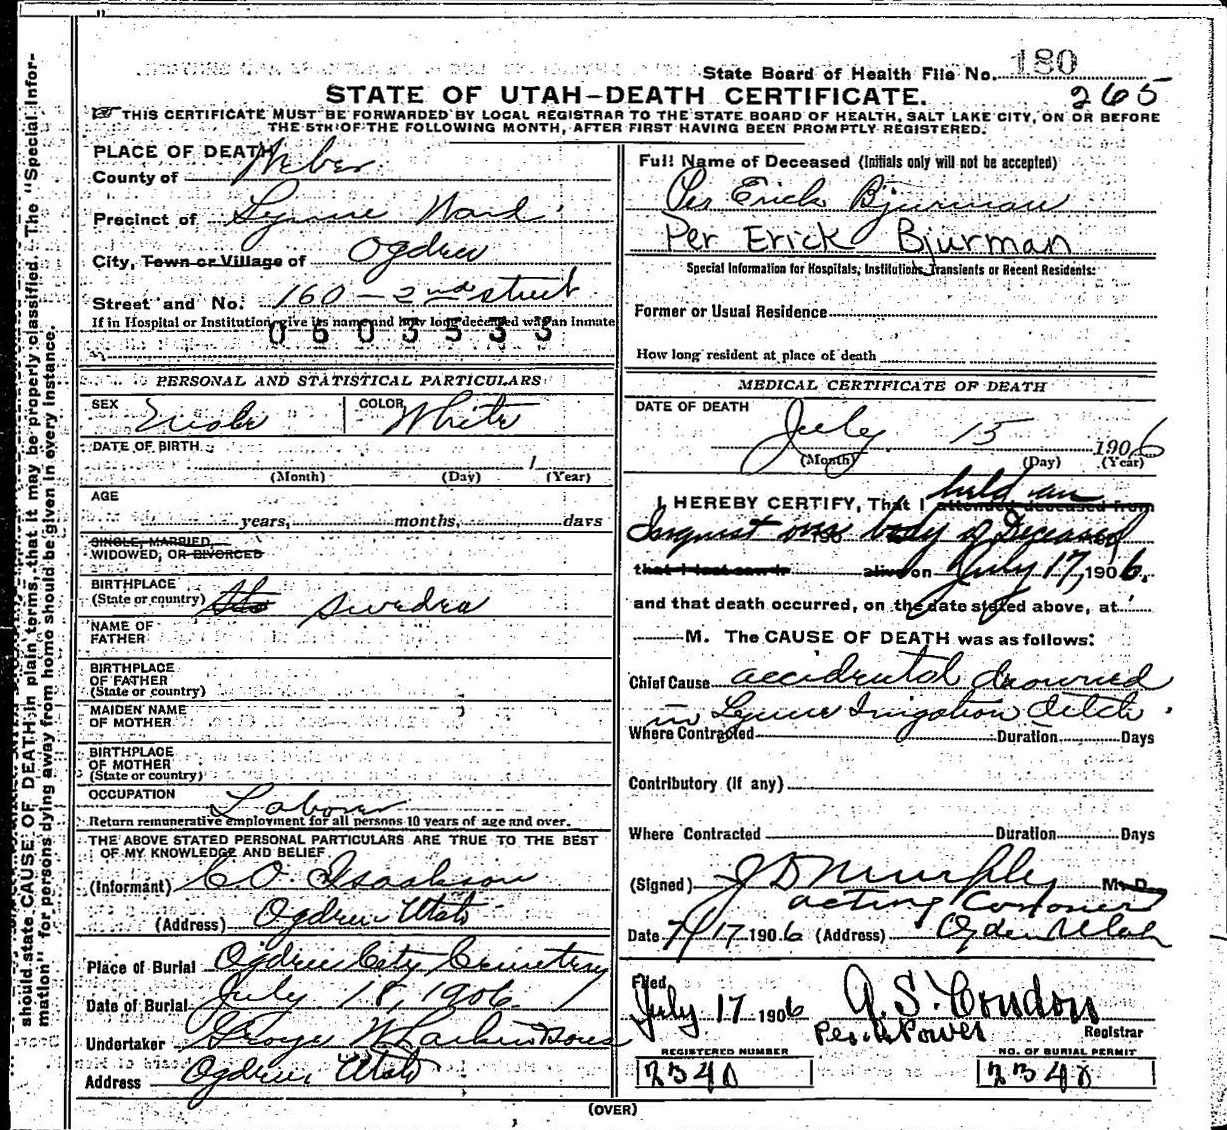 State Board of Health File No. 180
STATE OF UTAH—DEATH CERTIFICATE. 265
THIS CERTIFICATE MUST BE FORWARDED BY LOCAL REGISTRAR TO THE STATE BOARD OF HEALTH, SALT LAKE CITY, ON OR BEFORE
THE 5TH OF THE FOLLOWING MONTH, AFTER FIRST HAVING BEEN PROMPTLY REGISTERED.
should state CAUSE OF DEATH in plain terms, that it may be properly classified. The "Special Infor-
mation" for persons dying away from home should be given in every instance.
PLACE OF DEATH
County of Weber
Precinct of Lynne Ward
City, Town or Village of Ogden
Street and No. 160 - 2nd street
If in Hospital or Institution, give its name and how long deceased was an inmate
0603533
PERSONAL AND STATISTICAL PARTICULARS
SEX Male COLOR White
DATE OF BIRTH
1
(Month) (Day) (Year)
AGE
years, months, days
SINGLE, MARRIED,
WIDOWED, OR DIVORCED
BIRTHPLACE
(State or country) Sweden
NAME OF
FATHER
BIRTHPLACE
OF FATHER
(State or country)
MAIDEN NAME
OF MOTHER
BIRTHPLACE
OF MOTHER
(State or country)
OCCUPATION Labour
Return remunerative employment for all persons 10 years of age and over.
THE ABOVE STATED PERSONAL PARTICULARS ARE TRUE TO THE BEST
OF MY KNOWLEDGE AND BELIEF
(Informant) C.O. Isaakson
(Address) Ogden Utah
Place of Burial Ogden City Cemetery
Date of Burial July 18, 1906
Undertaker George W Larkin & Sons
Address Ogden Utah
Full Name of Deceased (Initials only will not be accepted)
Per Erick Bjurman
Per Erick Bjurman
Special Information for Hospitals, Institutions, Transients or Recent Residents:
Former or Usual Residence
How long resident at place of death
MEDICAL CERTIFICATE OF DEATH
DATE OF DEATH
July 15 1906
(Month) (Day) (Year)
I HEREBY CERTIFY, That I attended deceased from held an
Inquest over 190 body of Deceased
that I last saw h alive on July 17, 1906.
and that death occurred, on the date stated above, at
M. The CAUSE OF DEATH was as follows:
Chief Cause accidental drowned
in Lynne Irigation ditch.
Where Contracted Duration Days
Contributory (if any)
Where Contracted Duration Days
(Signed) J D Murphy M. D.
acting Coroner
Date 7/17 1906 (Address) Ogden Utah
Filed
July 17 1906 A. S. Condon
Power Registrar
REGISTERED NUMBER NO. OF BURIAL PERMIT
2340 2340
(OVER)